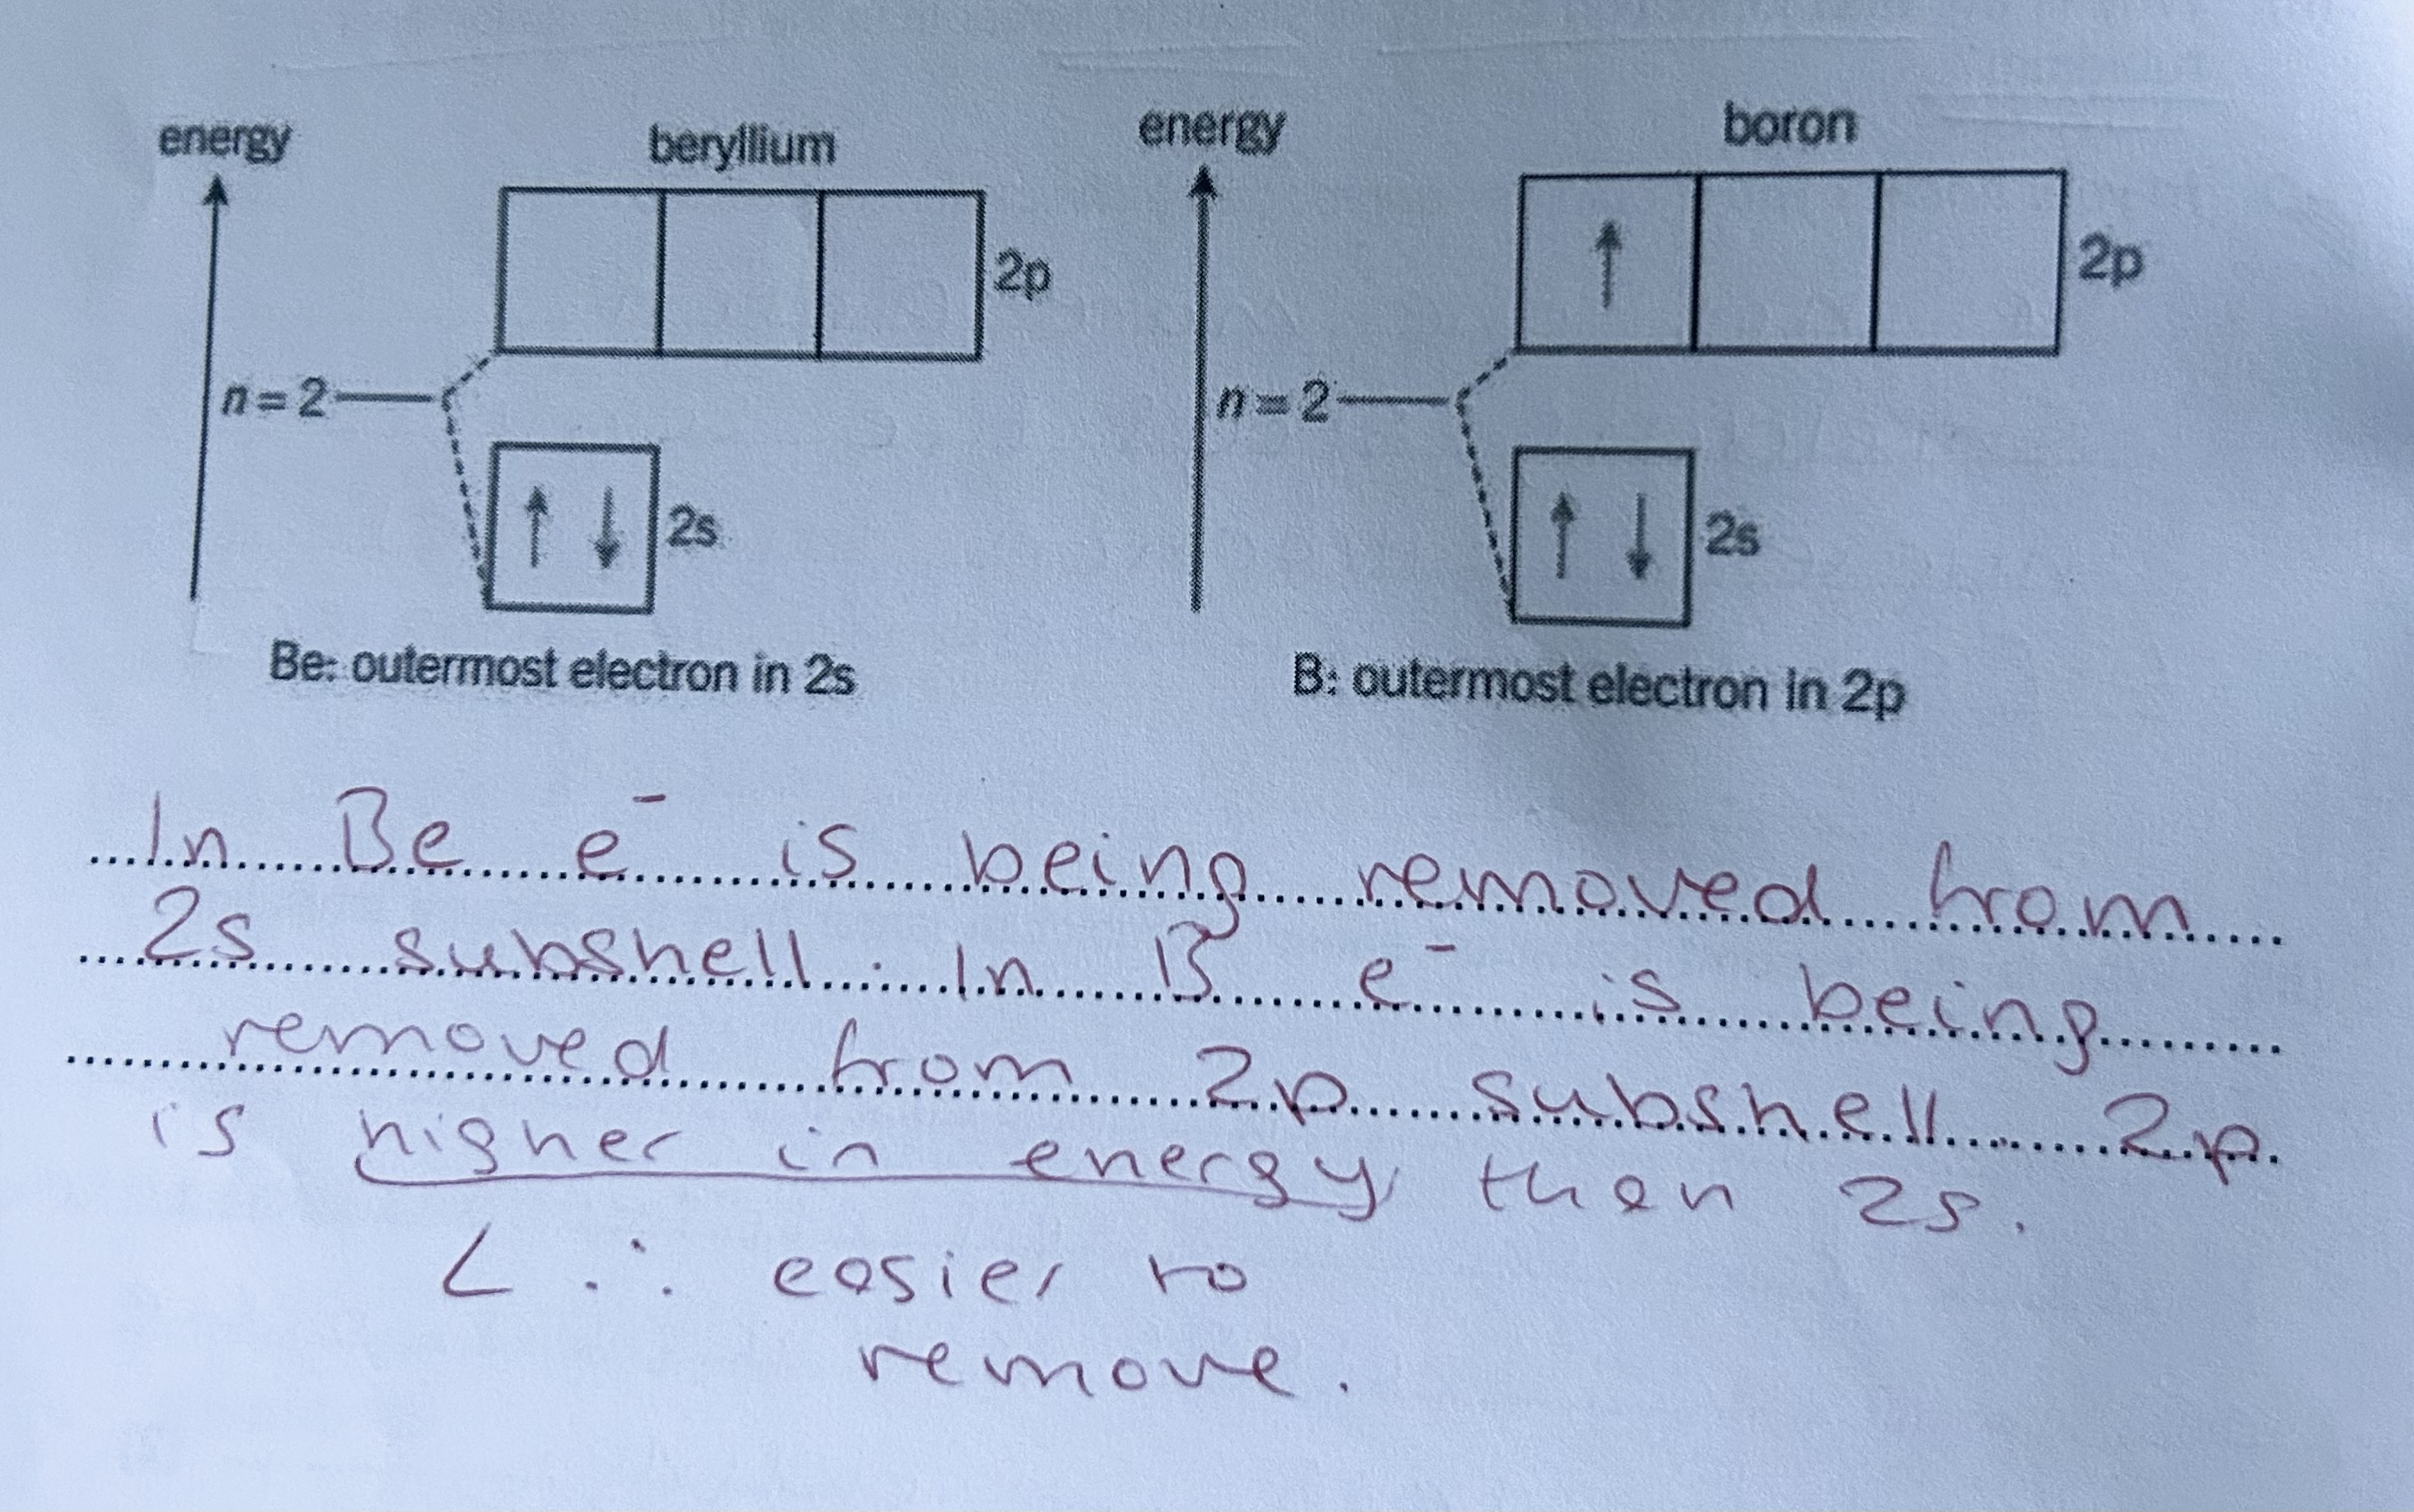 energy beryllium energy boron
2p 2p
n = 2 n = 2
2s 2s
Be: outermost electron in 2s B: outermost electron in 2p
In Be e⁻ is being removed from
2s subshell. In B e⁻ is being
removed from 2p subshell. 2p
is higher in energy then 2s.
∴ easier to
remove.